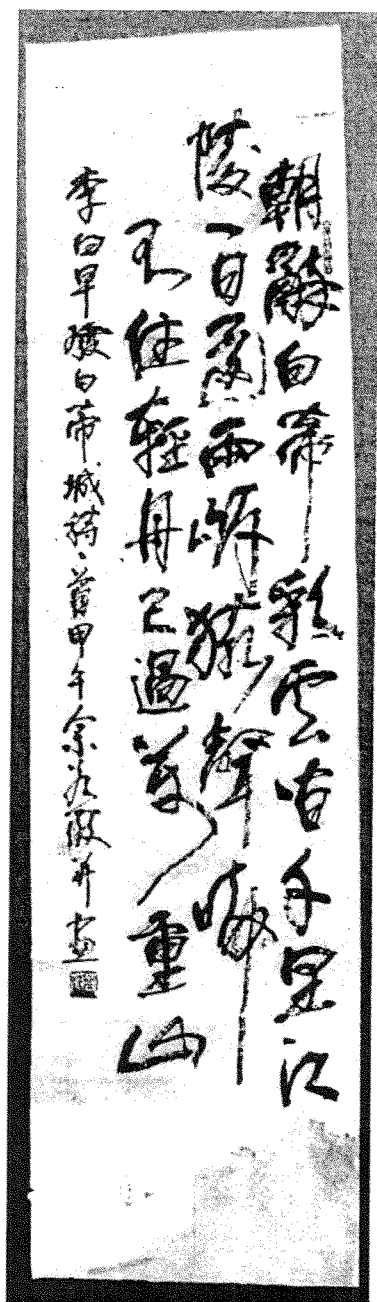 朝辭白帝彩雲間千里江
陵一日還兩岸猿聲啼
不住輕舟已過萬重山
李白早發白帝城詩一首甲午